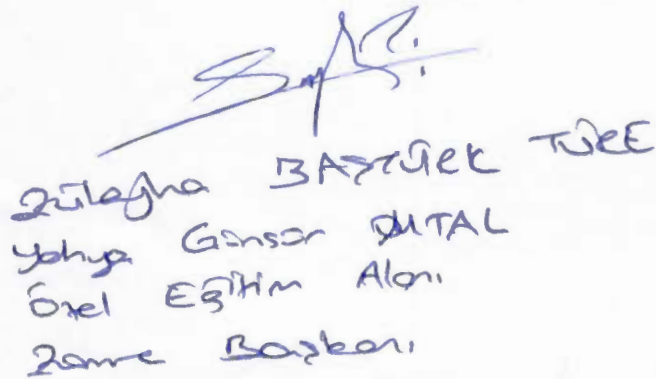 Züleyha BAŞTÜRK TÜRE
Yahya Günsür MTAL
Özel Eğitim Alanı
Zümre Başkanı